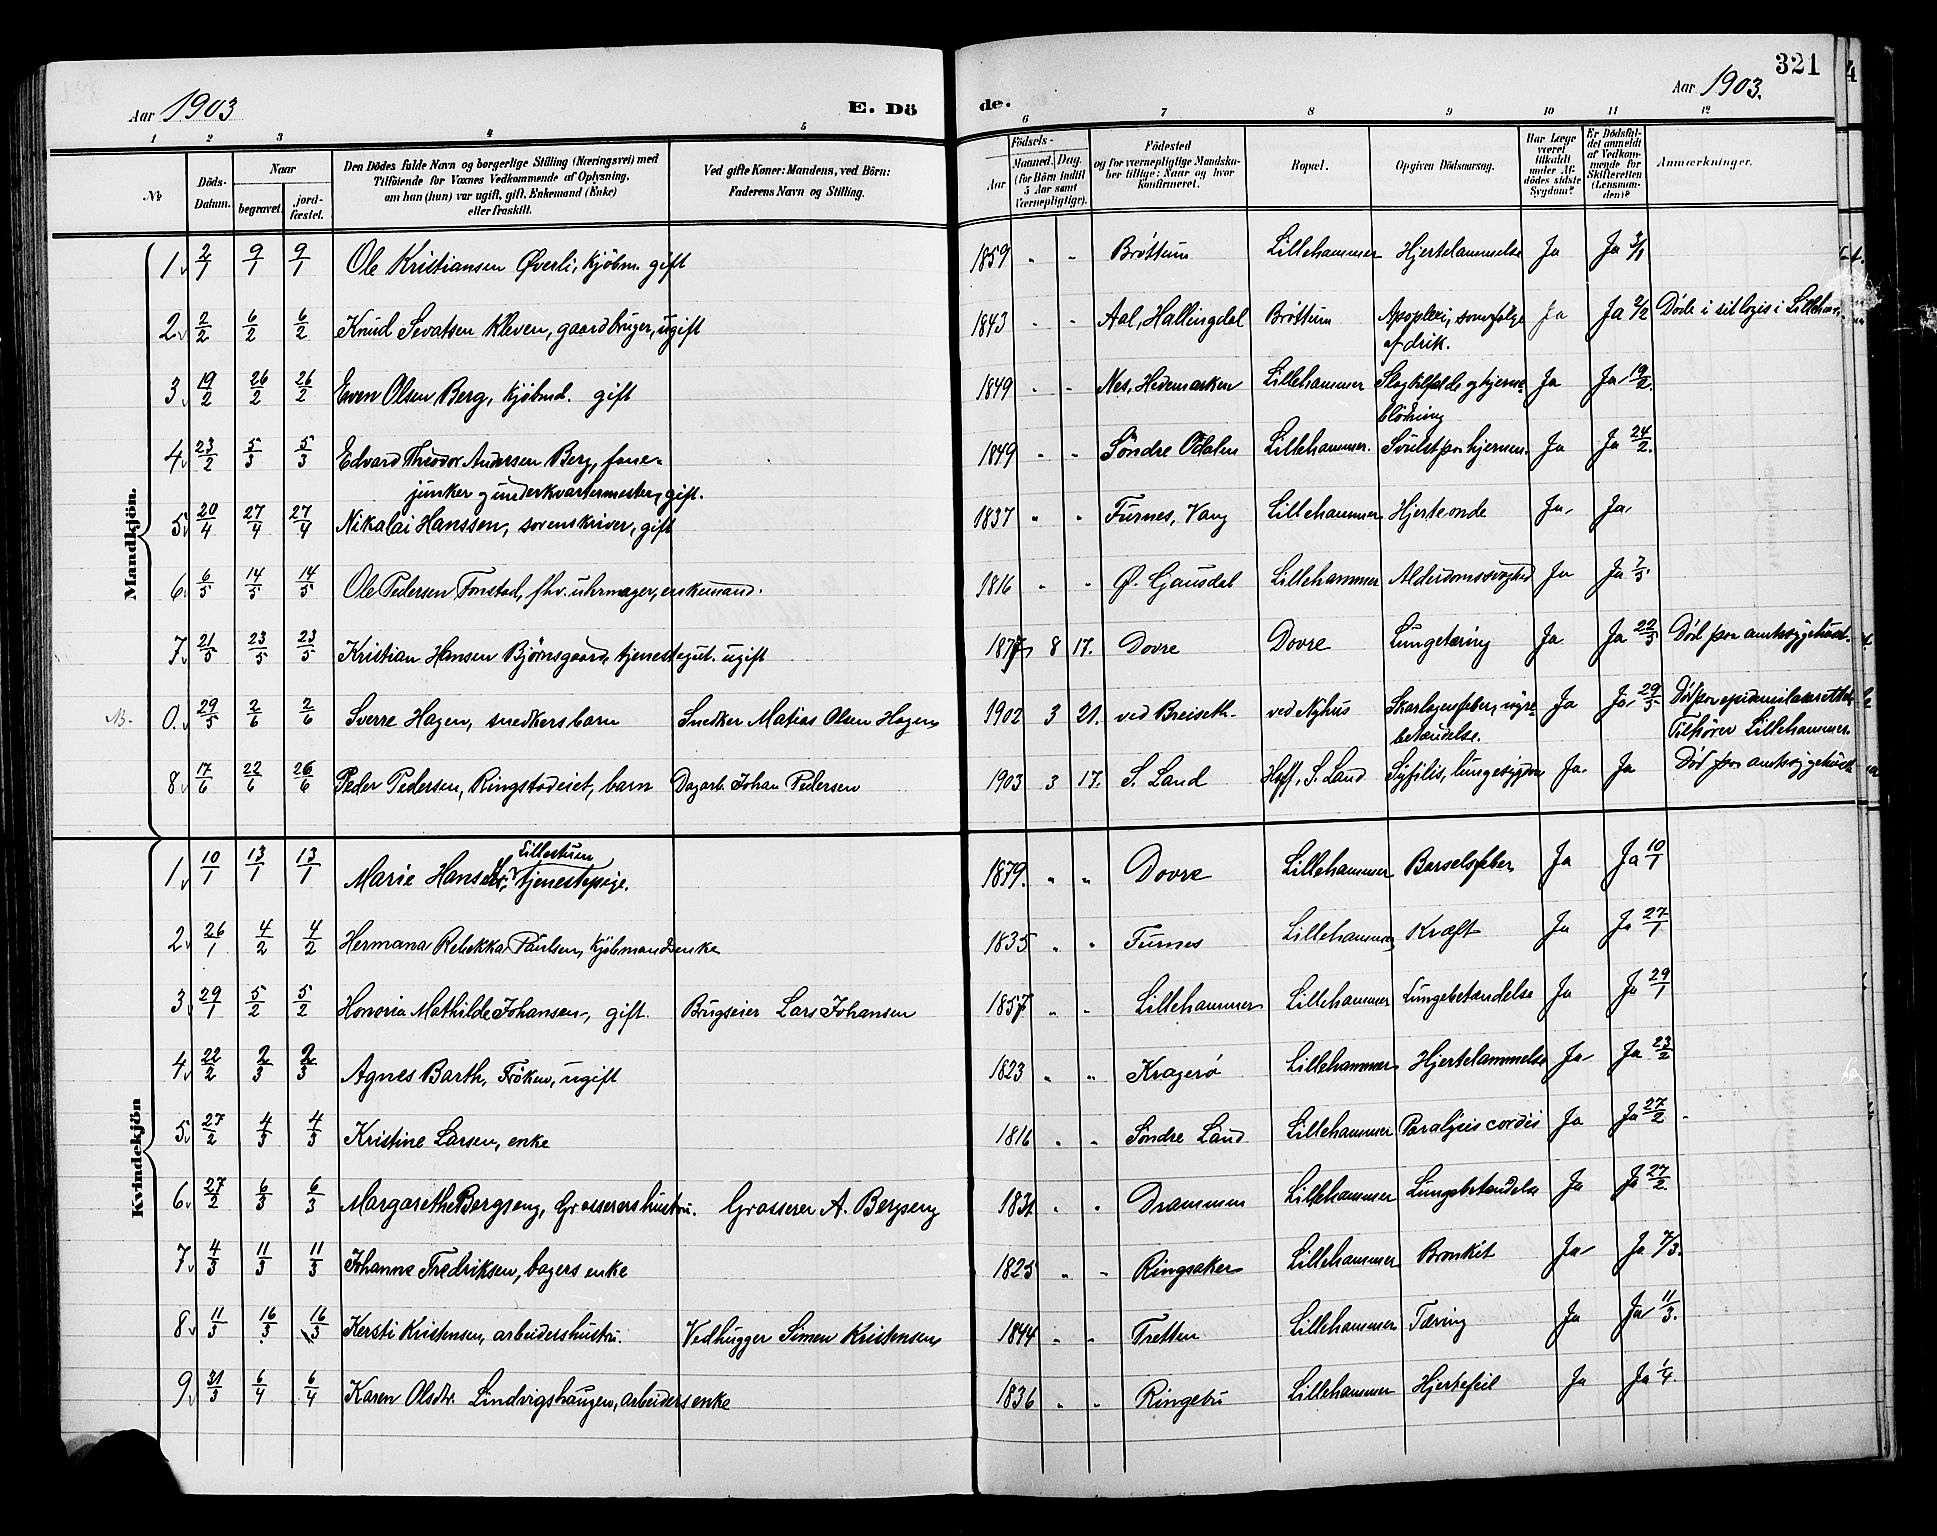 321
Aar 1903 E. Dö de. Aar 1903.
1 2 3 4 5 6 7 8 9 10 11 12
No. Döds-Datum. Naar begravet. jord-fæstet. Den Dödes fulde Navn og borgerlige Stilling (Næringsvei) med Tilföiende for Voxnes Vedkommende af Oplysning, om han (hun) var ugift, gift, Enkemand (Enke) eller fraskilt. Ved gifte Koner: Mandens, ved Börn: Faderens Navn og Stilling. Födsels- Aar Maaned. Dag. (for Börn indtil 5 Aar samt Værnepligtige). Födested og for værnepligtige Mandskaber tillige: Naar og hvor konfirmeret. Bopæl. Opgiven Dödsaarsag. Har Læge været tilkaldt under Afdödes sidste Sygdom? Er Dödsfaldet anmeldt af Vedkommende for Skifteretten (Lensmanden)? Anmærkninger.
Mandkjön.
1 2/1 9/1 9/1 Ole Kristiansen Øverli, kjöbm. gift 1859 " " Bröttum Lillehammer Hjertelammelse Ja Ja 3/1
2 2/2 6/2 6/2 Knud Sevatsen Kleven, gaardbruger, ugift 1843 " " Aal, Hallingdal Bröttum Apoplexi, som fölge af drik. Ja Ja 2/2 Döde i sit logis i Lilleham.
3 19/2 26/2 26/2 Even Olsen Berg, kjöbmd. gift 1849 " " Nes, Hedemarken Lillehammer Slagtilfælde og hjerneblödning Ja Ja 19/2.
4 23/2 5/3 5/3 Edvard Theodor Andersen Berg, fanejunker og underkvartermester, gift. 1849 " " Söndre Odalen Lillehammer. Svulst paa hjernen. Ja Ja 24/2.
5 20/4 27/4 27/4 Nikolai Hanssen, sorenskriver, gift 1837 " " Furnes, Vang Lillehammer Hjerteonde Ja, Ja,
6 6/5 14/5 14/5 Ole Pedersen Fonstad, fhv. uhrmager, enkemand. 1816 " " Ø. Gausdal Lillehammer Alderdomssvaghed Ja Ja 7/5.
7 21/5 23/5 23/5 Kristian Hansen Björnsgaard, tjenestegut. ugift 1877 8 17. Dovre Dovre Lungetæring Ja Ja 22/5 Död paa amtssygehuset.
0. 29/5 2/6 2/6 Sverre Hagen, snedkersbarn Snedker Matias Olsen Hagen 1902 3 21. ved Breiseth. ved Nyhus Skarlagensfeber, nyrebetændelse. Ja Ja 29/5 Död paa epidemilazarettet. Tilhörer Lillehammer.
8 17/6 22/6 26/6 Peder Pedersen, Ringstadeiet, barn Dagarb. Johan Pedersen 1903 3 17. S. Land Hoff, S. Land Syfilis, lungesygdom Ja. Ja Död paa amtssygehuset
Kvindekjön
1 10/1 13/1 13/1 Marie Hansdtr. Lillestuen tjenestepige. 1879. " " Dovre Lillehammer Barselsfeber Ja Ja 10/1
2 26/1 4/2 4/2 Hermana Rebekka Paulsen, kjöbmandsenke 1835 " " Furnes Lillehammer Kræft Ja Ja 27/1
3 29/1 5/2 5/2 Honoria Mathilde Johansen, gift. Brugseier Lars Johansen 1857 " " Lillehammer Lillehammer Lungebetændelse Ja Ja 29/1
4 22/2 2/3 2/3 Agnes Barth, Fröken, ugift 1823 " " Kragerö Lillehammer Hjertelammelse Ja Ja 23/2
5 27/2 4/3 4/3 Kristine Larsen, enke 1816 " " Söndre Land Lillehammer Paralysis cordis Ja Ja 27/2
6 27/2 6/3 6/3 Margarethe Bergseng, Grosserershustru. Grosserer A. Bergseng 1831 " " Drammen Lillehammer Lungebetændelse Ja Ja 27/2.
7 4/3 11/3 11/3 Johanne Fredriksen, bagers enke 1825 " " Ringsaker Lillehammer Bronkit Ja Ja 7/3.
8 11/3 16/3 16/3 Kersti Kristensen, arbeidershustru. Vedhugger Simen Kristensen 1844 " " Tretten Lillehammer Tæring Ja Ja 11/3.
9 31/3 6/4 6/4 Karen Olsdtr. Lindvigshaugen, arbeiders enke 1836 " " Ringebu Lillehammer Hjertefeil Ja Ja 1/4.